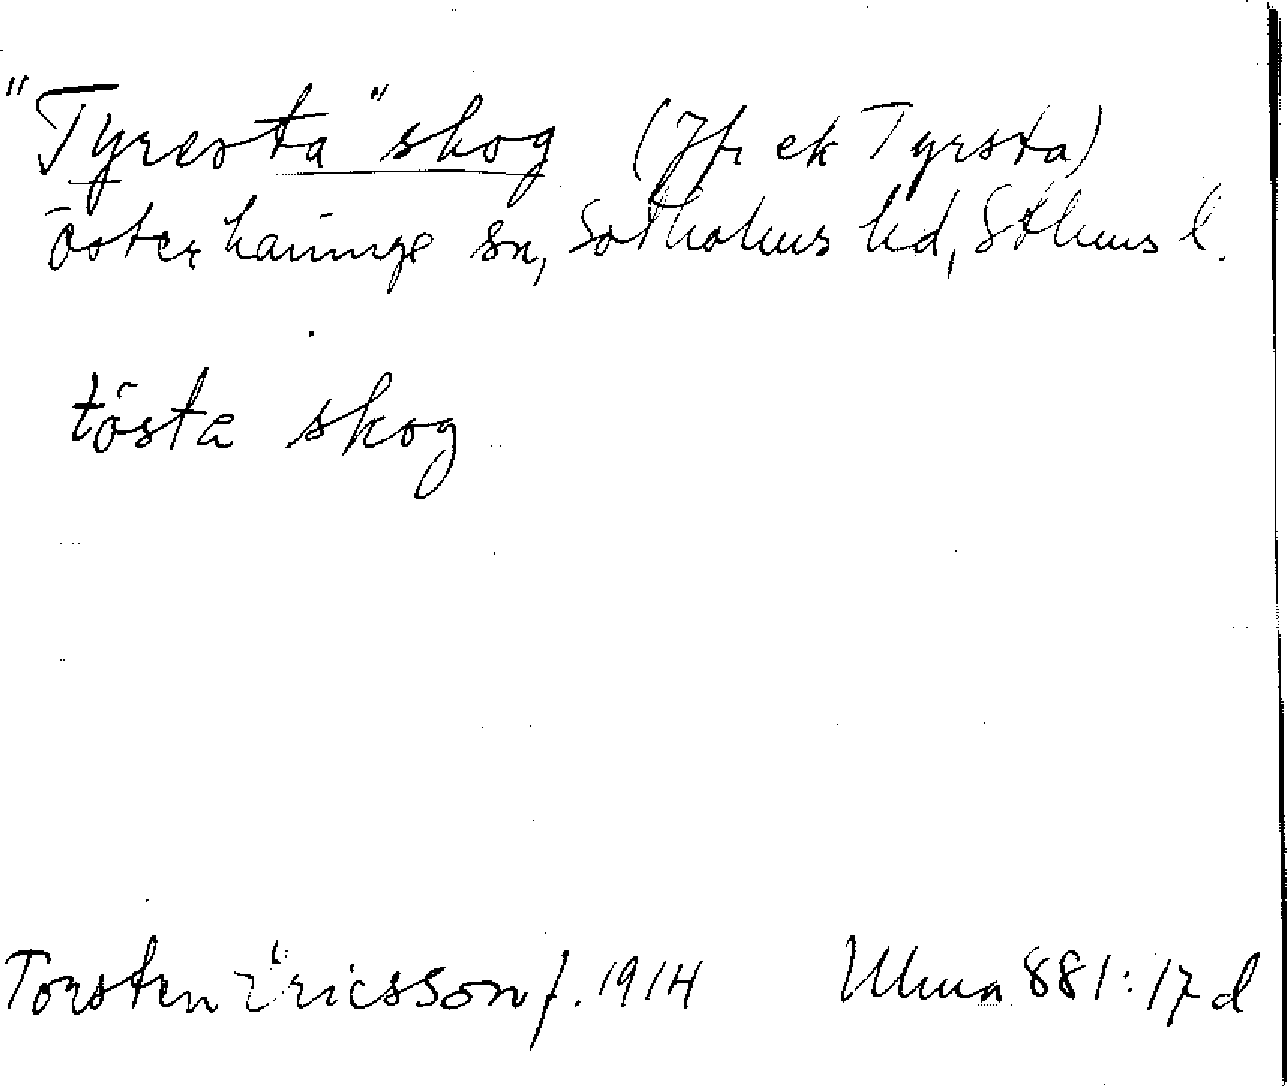 "Tyresta" skog (Jfr ek Tyrsta)
Österhaninge sn, Sotholms hd, Sthms l.
tösta skog
Torsten Ericsson f. 1914 Ulma 881:17 d